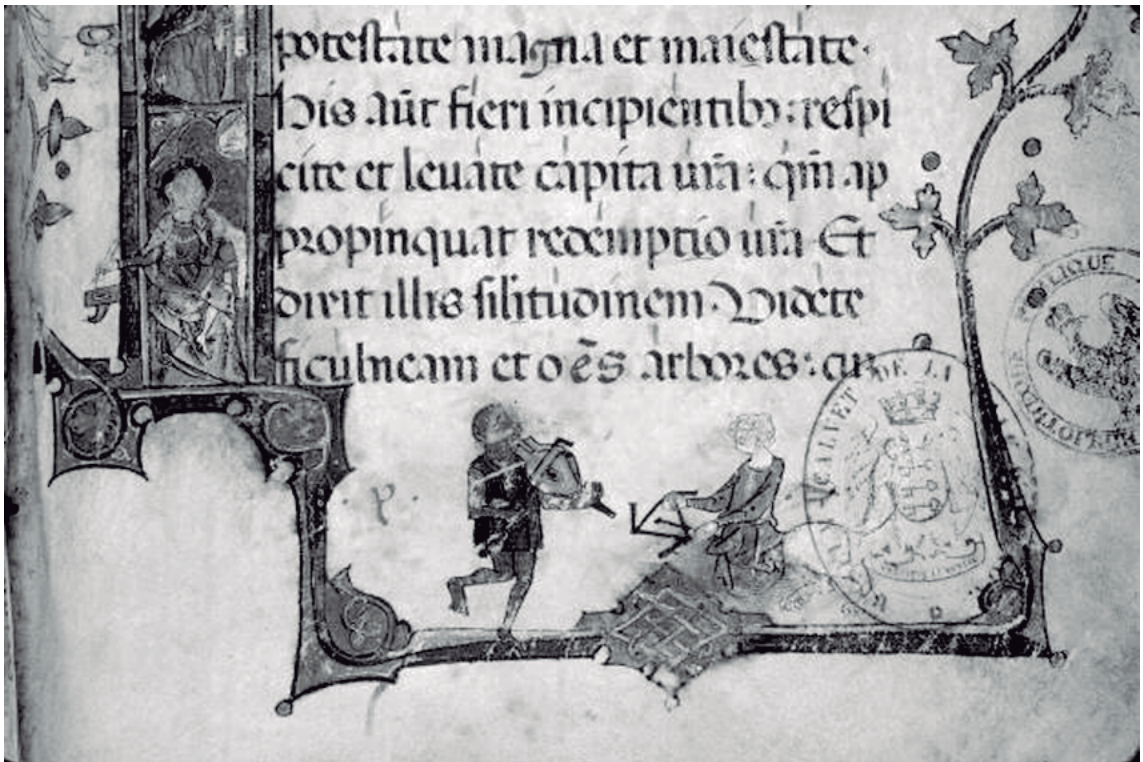 potestate magna et maiestate.
His aūt fieri incipientibꝫ: respi
cite et levate capita vr̄a: qm̄ ap
propinquat redemptio vr̄a. Et
dixit illis silitudinem. Videte
ficulneam et o ēs arbores: cu
CALVET DE LA
BLIQUE